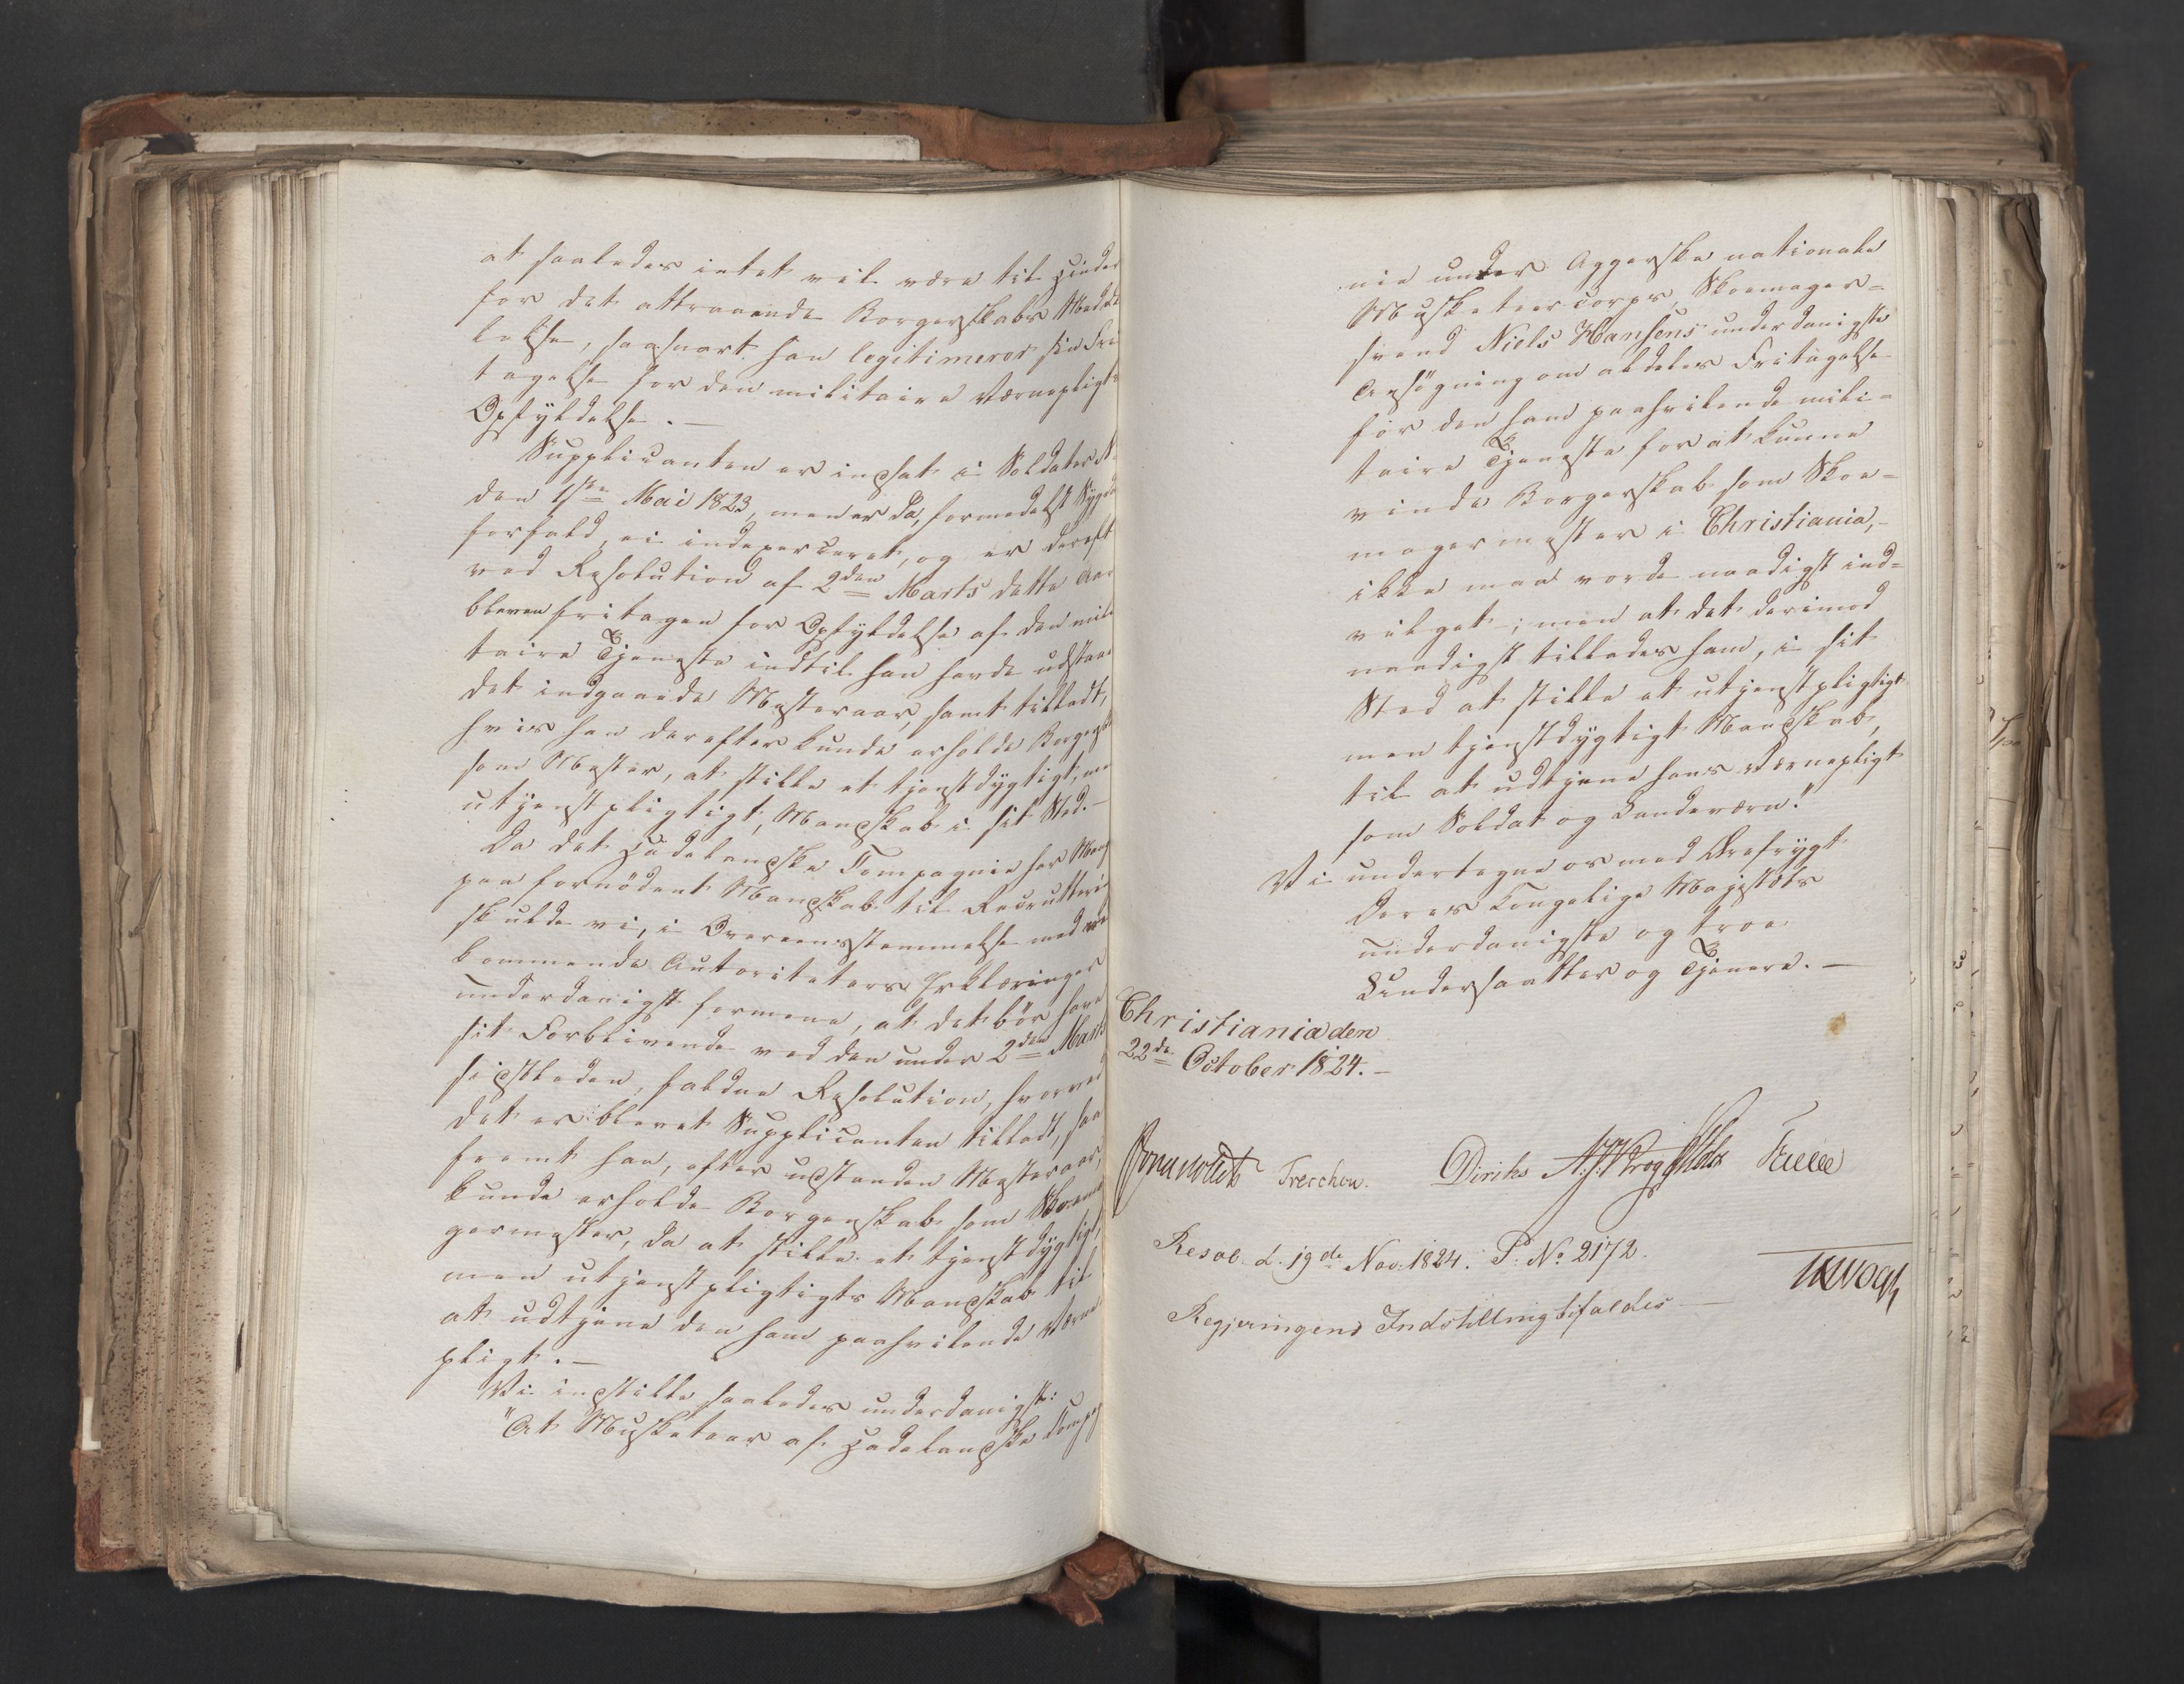 at saaledes intet vil være til Hinder
for det attraaende Borgerskabs Medde
lelse, saasnart han legitimerer sin Fri
tagelse for den militaire Værnepligts
Opfyldelse. —
Supplicanten er indsat i Soldater N
den 1ste Mai 1823, men er da, formedelst Sygdo
forfald, ei indexerceret, og er dereft
ved Resolution af 2den Marts dette Aar
bleven fritagen for Opfyldelse af den mili
taire Tjeneste indtil han havde udstaae
det indgaaende Mesteraar, samt tilladt,
hvis han derefter kunde erholde Borgersk
som Mester, at stille et tjenstdygtigt, me
utjenstpligtigt, Mandskab i sit Sted. —
Da det Hadelandske Compagnie har Mang
paa fornødent Mandskab til Recrutteri
skulde vi, i Overeensstemmelse med ved
kommende Autoriteters Erklæringer
underdanigst formene, at det bør have
sit Forblivende ved den under 2den Marts
sidstleden, faldne Resolution, hvorved
det er blevet Supplicanten tilladt, saa
fremt han, efter udstanden Mesteraar,
kunde erholde Borgerskab som Skoema
germester, da at stille et tjenstdygtigt,
men utjenstpligtigts Mandskab til
at udtjene den ham paahvilende Værne
pligt. —
Vi indstille saaledes underdanigst:
"At Musketeer af Hadelandske Compag
nie under Aggerske nationale
Musketeercorps, Skoemager=
svend Niels Hansens underdanigste
Ansøgning om aldeles Fritagelse
for den ham paahvilende mili=
taire Tjeneste for at kunne
vinde Borgerskab som Skoe=
magermester i Christiania,
ikke maa vorde naadigst ind=
vilget; men at det derimod
naadigst tillades ham, i sit
Sted at stille et utjenstpligtigt
men tjenstdygtigt Mandskab,
til at udtjene hans Værnepligt
som Soldat og Landeværn!"
Vi undertegne os med Ærefrygt
Deres Kongelige Majestæts
underdanigste og troe
Undersaatter og Tjenere. —
Christiania den
22de October 1824. —
Treschow. Diriks
Resol. d. 19de Nov. 1824. P. No 2172.
Regjeringens Indstilling bifaldes —